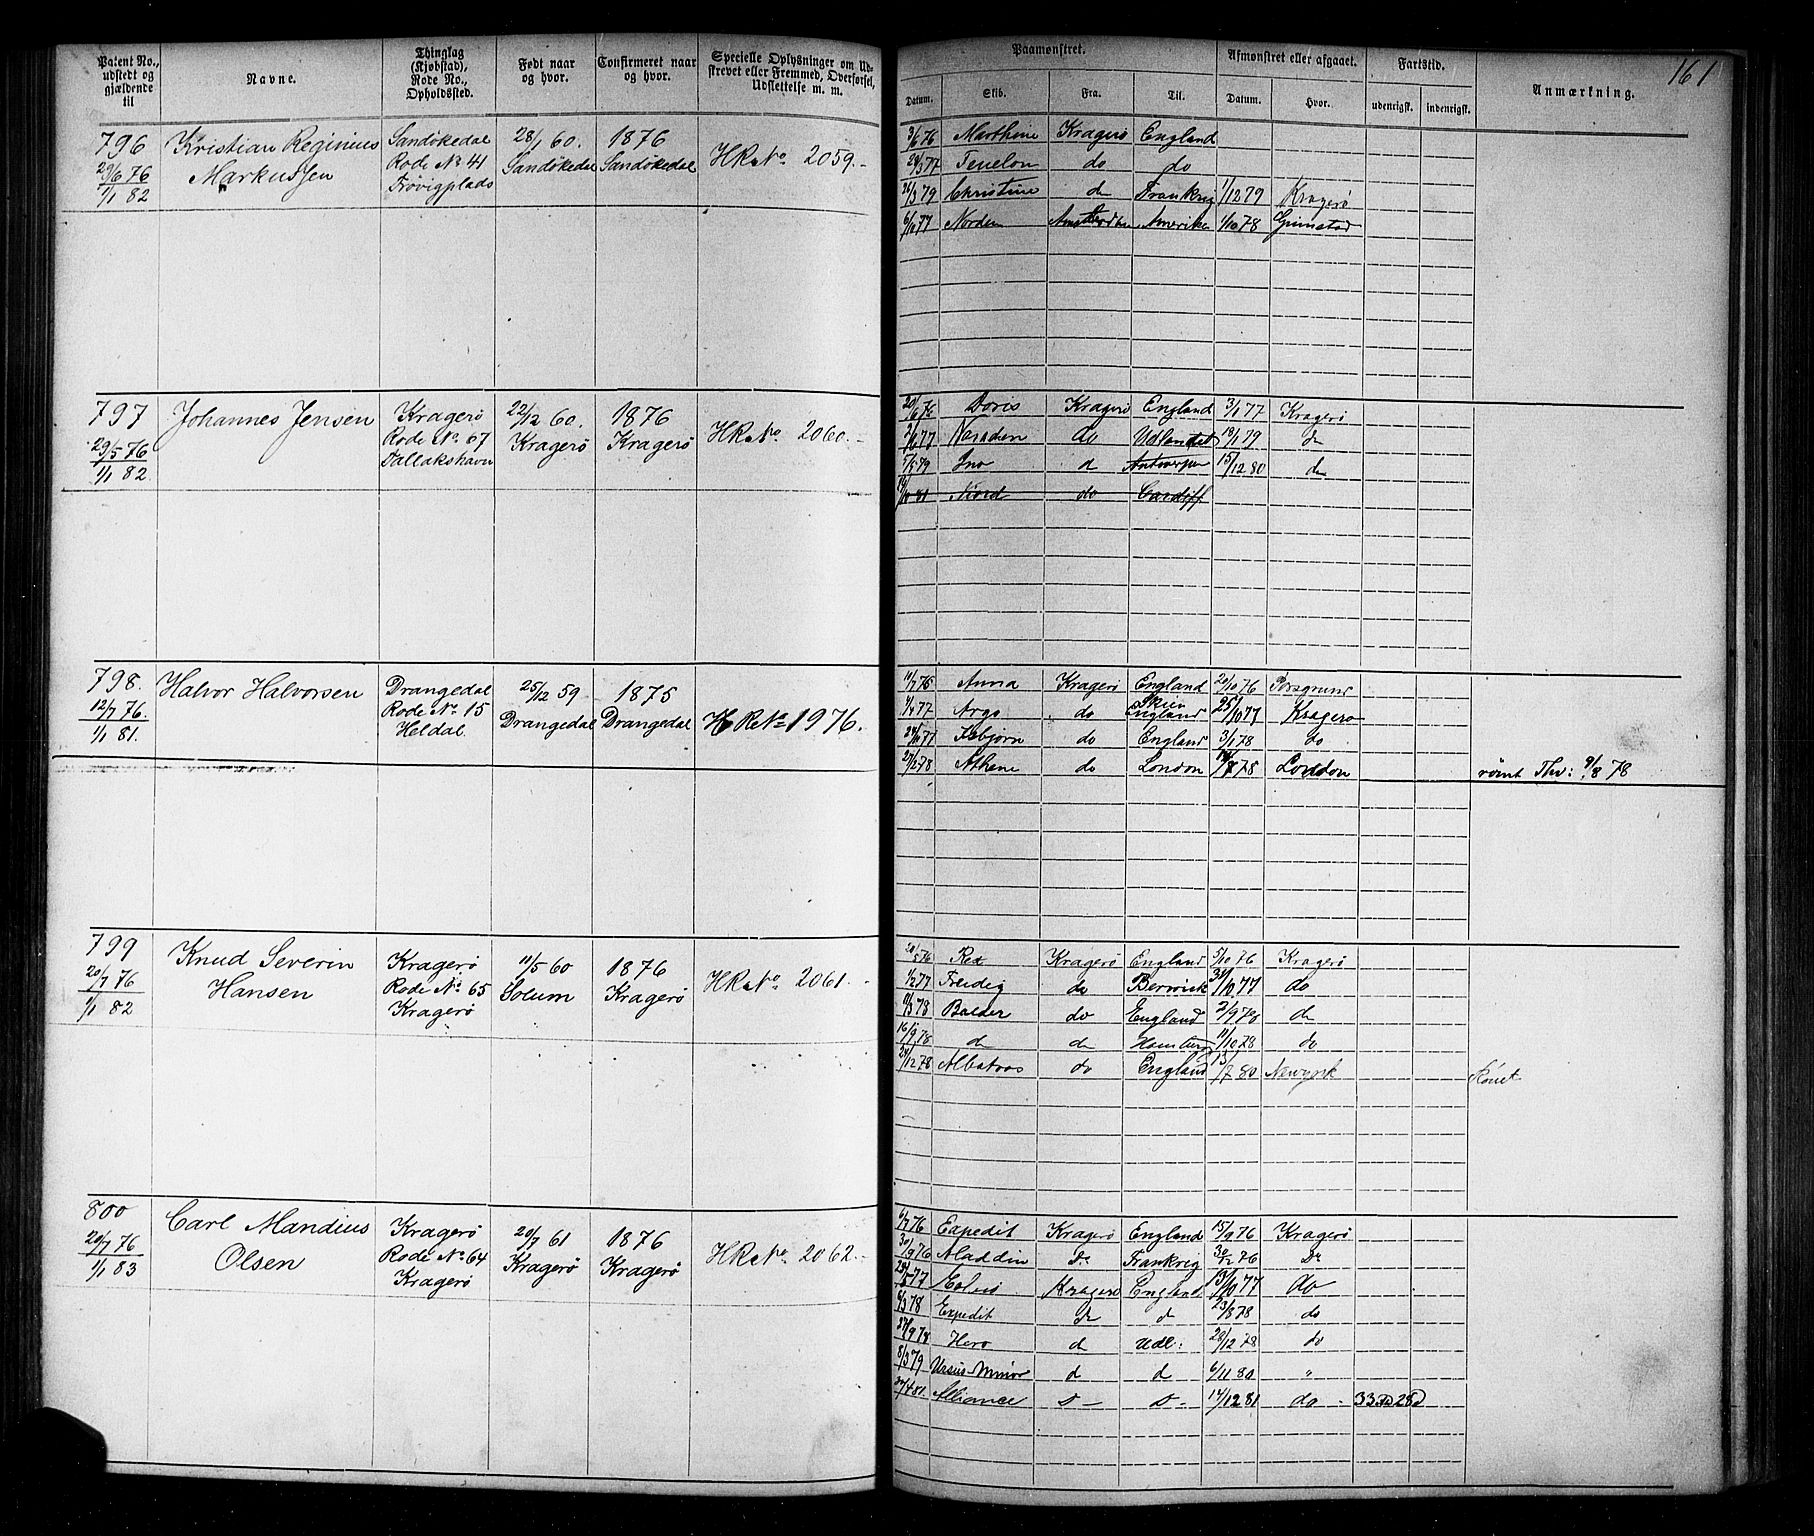 161
Patent No., udstedt og gjældende til
Navne.
Thinglag (Kjøbstad), Rode No., Opholdssted.
Født naar og hvor.
Confirmeret naar og hvor.
Specielle Oplysninger om Udskrevet eller Fremmed, Overførsel, Udslettelse m. m.
Paamønstret.
Datum. Skib. Fra. Til.
Afmønstret eller afgaaet.
Datum. Hvor.
Fartstid.
udenrigsk. indenrigsk.
Anmærkning.
796 Kristian Reginius Sandökedal 28/1 60. 1876
29/6 76 Markussen Rode No 41 Sandökedal Sandökedal HR No 2059.-
1/1 82 Frövigplads
3/6 76 Marthine Kragerö England
Fenelon do do
26/3 79 Christine do Frankrig 1/12 79 Kragerö
6/10 77 Norden Amsterdam Amerika 1/10 78 Grimstad
797 Johannes Jensen Kragerö 22/12 60. 1876
29/5 76 Rode No. 67 Kragerö Kragerö HR No 2060.-
1/1 82. Tallakshavn
Doris Kragerö England 3/1 77 Kragerö
do Udlandet 18/1 79 do
Ino d Antwerpen 15/12 80 do
Njord do Cardiff
798. Halvor Halvorsen Drangedal 25/12 59. 1875
12/7 76. Rode No 15 Drangedal Drangedal HR No 1976.
1/1 81. Heldal.
11/7 76 Anna Kragerö England 20/10 76 Porsgrund
Argo do Skien England 25/10 77 Kragerö
do England 3/1 78 do
27/2 78 Athene do London London römt Thv: 9/8 78
799 Knud Severin Kragerö 11/5 60 1876
20/7 76 Hansen Rode No 65 Solum Kragerö HR No 2061.-
1/1 82 Kragerö
20/5 76 Rex Kragerö England 5/10 76 Kragerö
1/2 77 Freidig do Berwick 31/10 77 do
Balder do England 2/9 78 do
16/9 78 do do Hamburg 11/10 78 do
24/12 78 Albatros do England 13/7 80 Newyork
800 Carl Mandius Kragerö 20/7 61 1876
20/7 76 Olsen Rode No 64 Kragerö Kragerö HR No 2062.-
1/1 83 Kragerö
6/7 76 Expedit Kragerö England 15/9 76 Kragerö
30/9 76 Aladdin do Frankrig 30/12 76 Do
Kragerö England 13/10 77 do
8/3 78 Expedit do d 23/8 78 do
27/9 78 Hero d Udl: 28/12 78 do
8/3 79 Ursus-Minor d d 6/11 80 "
Alliance d- d- 17/12 81 do